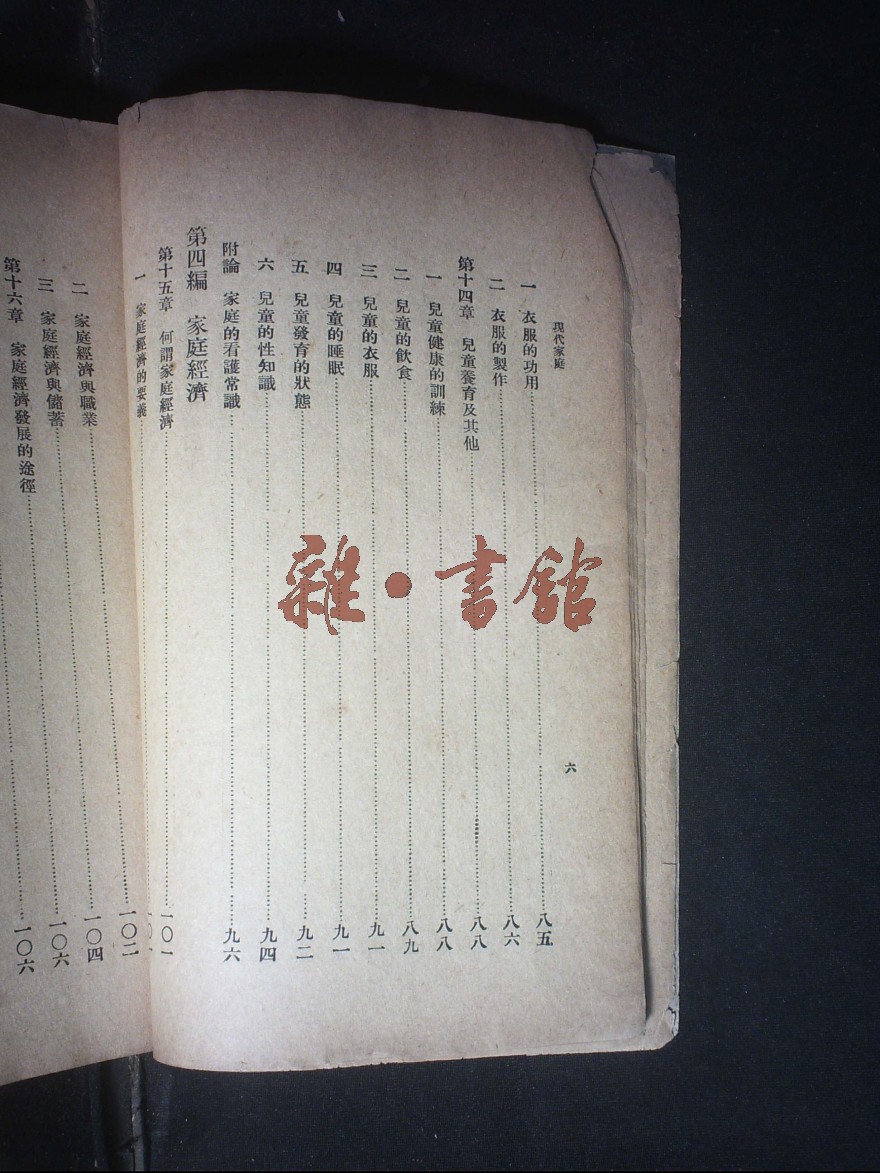 現代家庭
六
一 衣服的功用 八五
二 衣服的製作 八六
第十四章 兒童養育及其他 八八
一 兒童健康的訓練 八八
二 兒童的飲食 八九
三 兒童的衣服 九一
四 兒童的睡眠 九一
五 兒童發育的狀態 九二
六 兒童的性知識 九四
附論 家庭的看護常識 九六
第四編 家庭經濟
第十五章 何謂家庭經濟 一〇一
一 家庭經濟的要義
二 家庭經濟與職業 一〇二
三 家庭經濟與儲蓄 一〇四
第十六章 家庭經濟發展的途徑 一〇六
一〇六
雜·書館